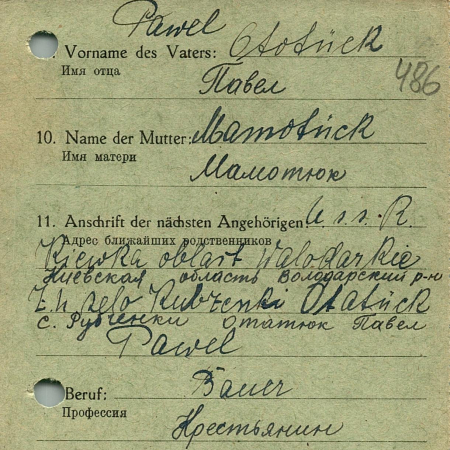 Pawel
9. Vorname des Vaters: Ototück
Имя отца
Павел
486
10. Name der Mutter: Mamotück
Имя матери
Мамотюк
11. Anschrift der nächsten Angehörigen: U.s.s.R.
Адрес ближайших родственников
Kiewka oblast Walodarkie
Киевская область Володарский р-н
selo Rubzenki Otatück
с. Рубченки Отатюк Павел
Pawel
Beruf: Bauer
Профессия
Крестьянин